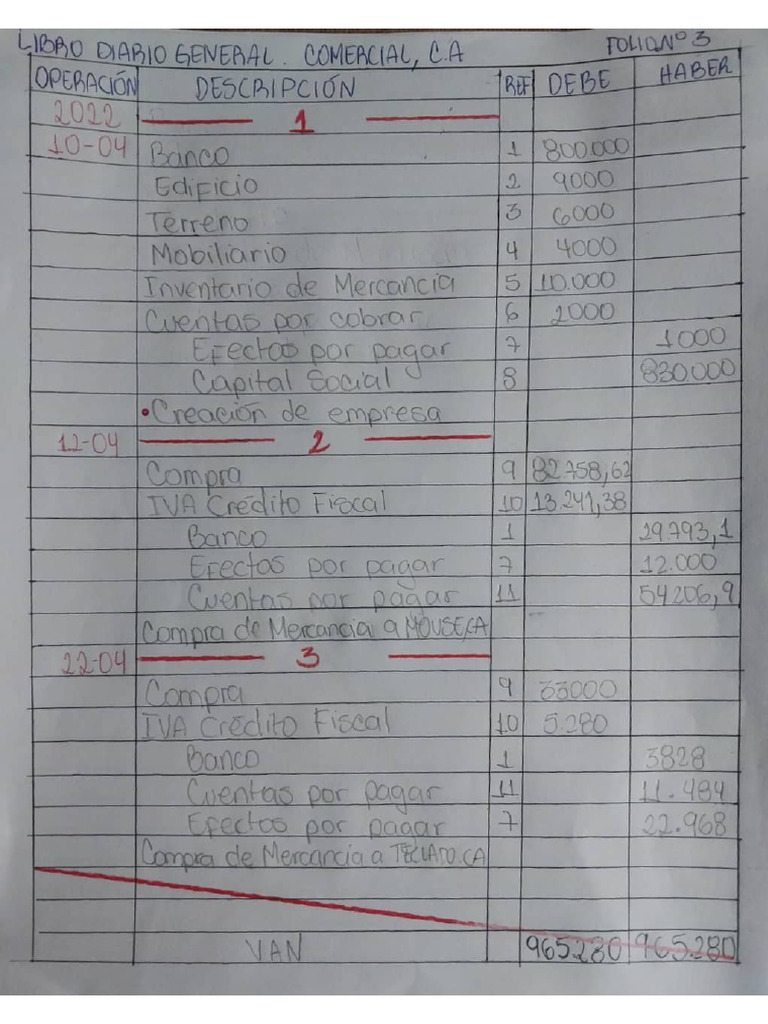 LIBRO DIARIO GENERAL. COMERCIAL, C.A FOLIO Nº 3
OPERACIÓN DESCRIPCIÓN REF DEBE HABER
2022 1
10-04 Banco 1 800.000
Edificio 2 9000
Terreno 3 6000
Mobiliario 4 4000
Inventario de Mercancia 5 10.000
Cuentas por cobrar 6 2000
Efectos por pagar 7 1000
Capital Social 8 830.000
•Creación de empresa
12-04 2
Compra 9 82758,62
IVA Crédito Fiscal 10 13.241,38
Banco 1 29.793,1
Efectos por pagar 7 12.000
Cuentas por pagar 11 54206,9
Compra de Mercancia a MOUSE,CA
22-04 3
Compra 9 33000
IVA Crédito Fiscal 10 5.280
Banco 1 3828
Cuentas por pagar 11 11.484
Efectos por pagar 7 22.968
Compra de Mercancia a TECLADO.CA
VAN 965.280 965.280